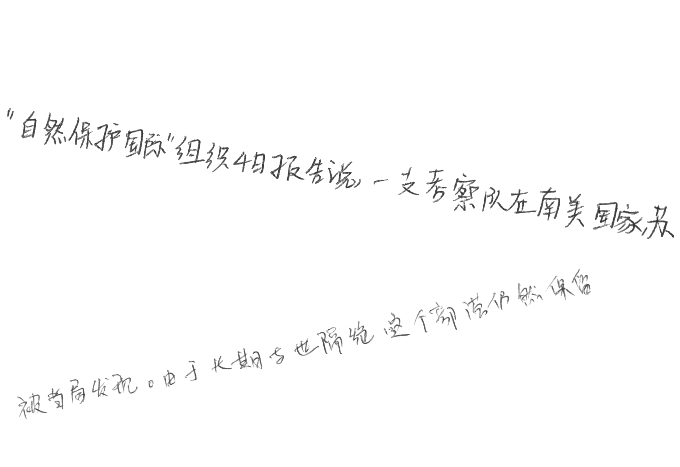 “自然保护国际”组织4日报告说,一支考察队在南美国家苏
被当局发现。由于长期与世隔绝这个部落仍然保留